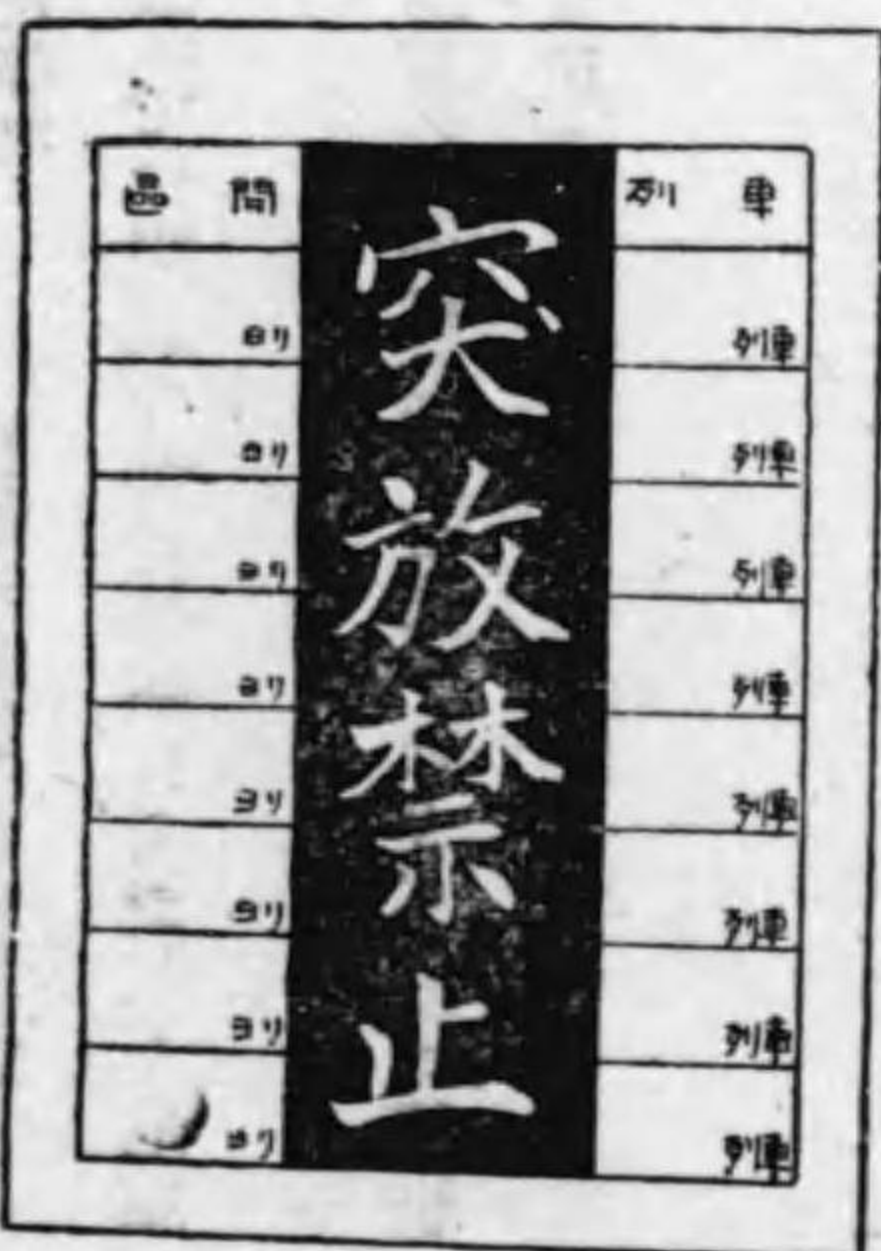 列車
列車
列車
列車
列車
列車
列車
列車
列車
突放禁止
區間
ヨリ
ヨリ
ヨリ
ヨリ
ヨリ
ヨリ
ヨリ
ヨリ